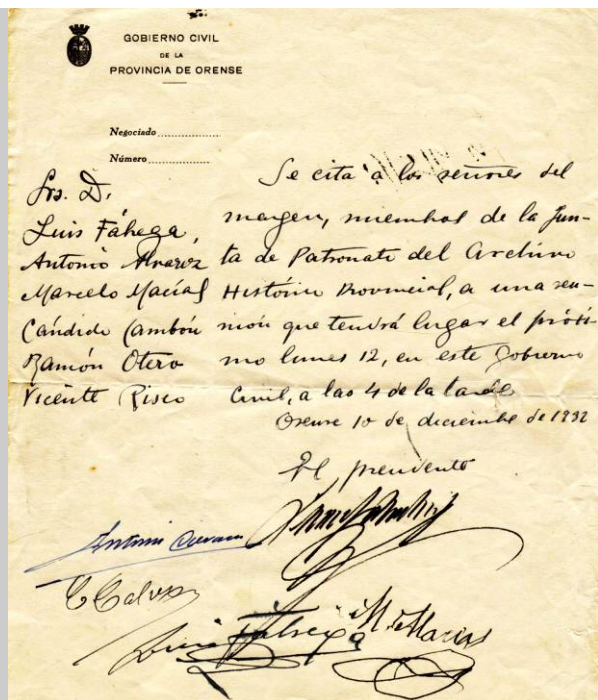 GOBIERNO CIVIL
DE LA
PROVINCIA DE ORENSE
Negociado
Número
Srs. D.
Luis Fábega,
Antonio Alvarez
Marcelo Macías
Cándido Cambón
Ramón Otero
Vicente Risco
Se cita a los señores del
margen, miembros de la Jun-
ta de Patronato del Archivo
Histórico Provincial, a una reu-
nión que tendrá lugar el próxi-
mo lunes 12, en este Gobierno
Civil, a las 4 de la tarde
Orense 10 de diciembre de 1932
El presidente
Antonio
M. Macías
Luis